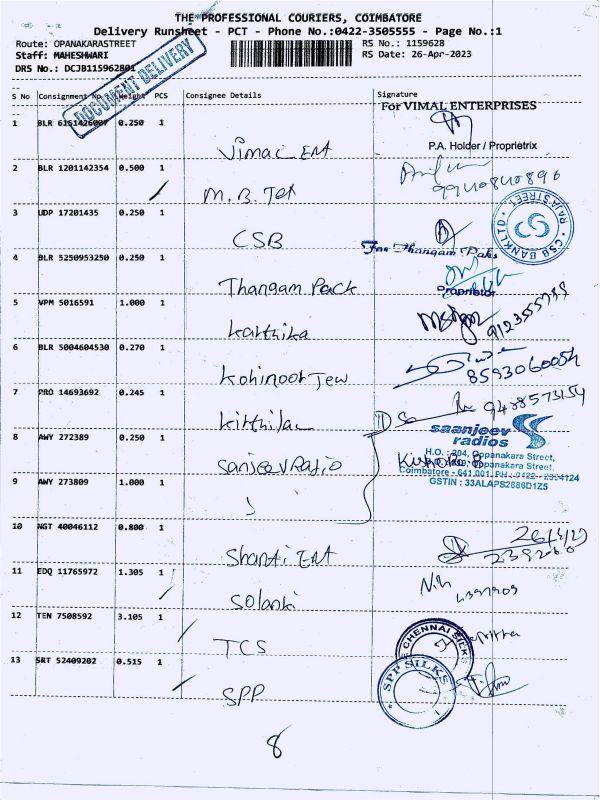 THE PROFESSIONAL COURIERS, COIMBATORE
Delivery Runsheet - PCT - Phone No.:0422-3505555 - Page No.:1
Route: OPANAKARASTREET
RS No.: 1159628
Staff: MAHESHWARI
RS Date: 26-Apr-2023
DRS No.: DCJB115962801
DOCUMENT DELIVERY
S No Consignment No Weight PCS Consignee Details Signature
For VIMAL ENTERPRISES
1 BLR 0.250 1
Vimal Ent
P.A. Holder / Proprietrix
2 BLR 1201142354 0.500 1
M.B. Tex
9940840896
3 UDP 17201435 0.250 1
CSB
CSB BANK LTD RAJA STREET
For Thangam Paks
4 BLR 5250953250 0.250 1
Thangam Pack
Proprietor
5 VPM 5016591 1.000 1
Karthika
6 BLR 5004604530 0.270 1
Kohinoor Jew
8593060054
7 PRO 14693692 0.245 1
9488573154
saanjeev
radios
8 AWY 272389 0.250 1
Sanjeev Radio
H.O. : 204, Oppanakara Street,
Oppanakara Street,
Coimbatore - 641 001. PH : 0422 - 2394124
GSTIN : 33ALAPS2886D1Z5
9 AWY 273809 1.000 1
10 NGT 40046112 0.800 1
Shanti Ent
11 EDQ 11765972 1.305 1
Solanki
12 TEN 7508592 3.105 1
TCS
CHENNAI SILKS
13 SRT 52409202 0.515 1
SPP
SPP SILKS
8